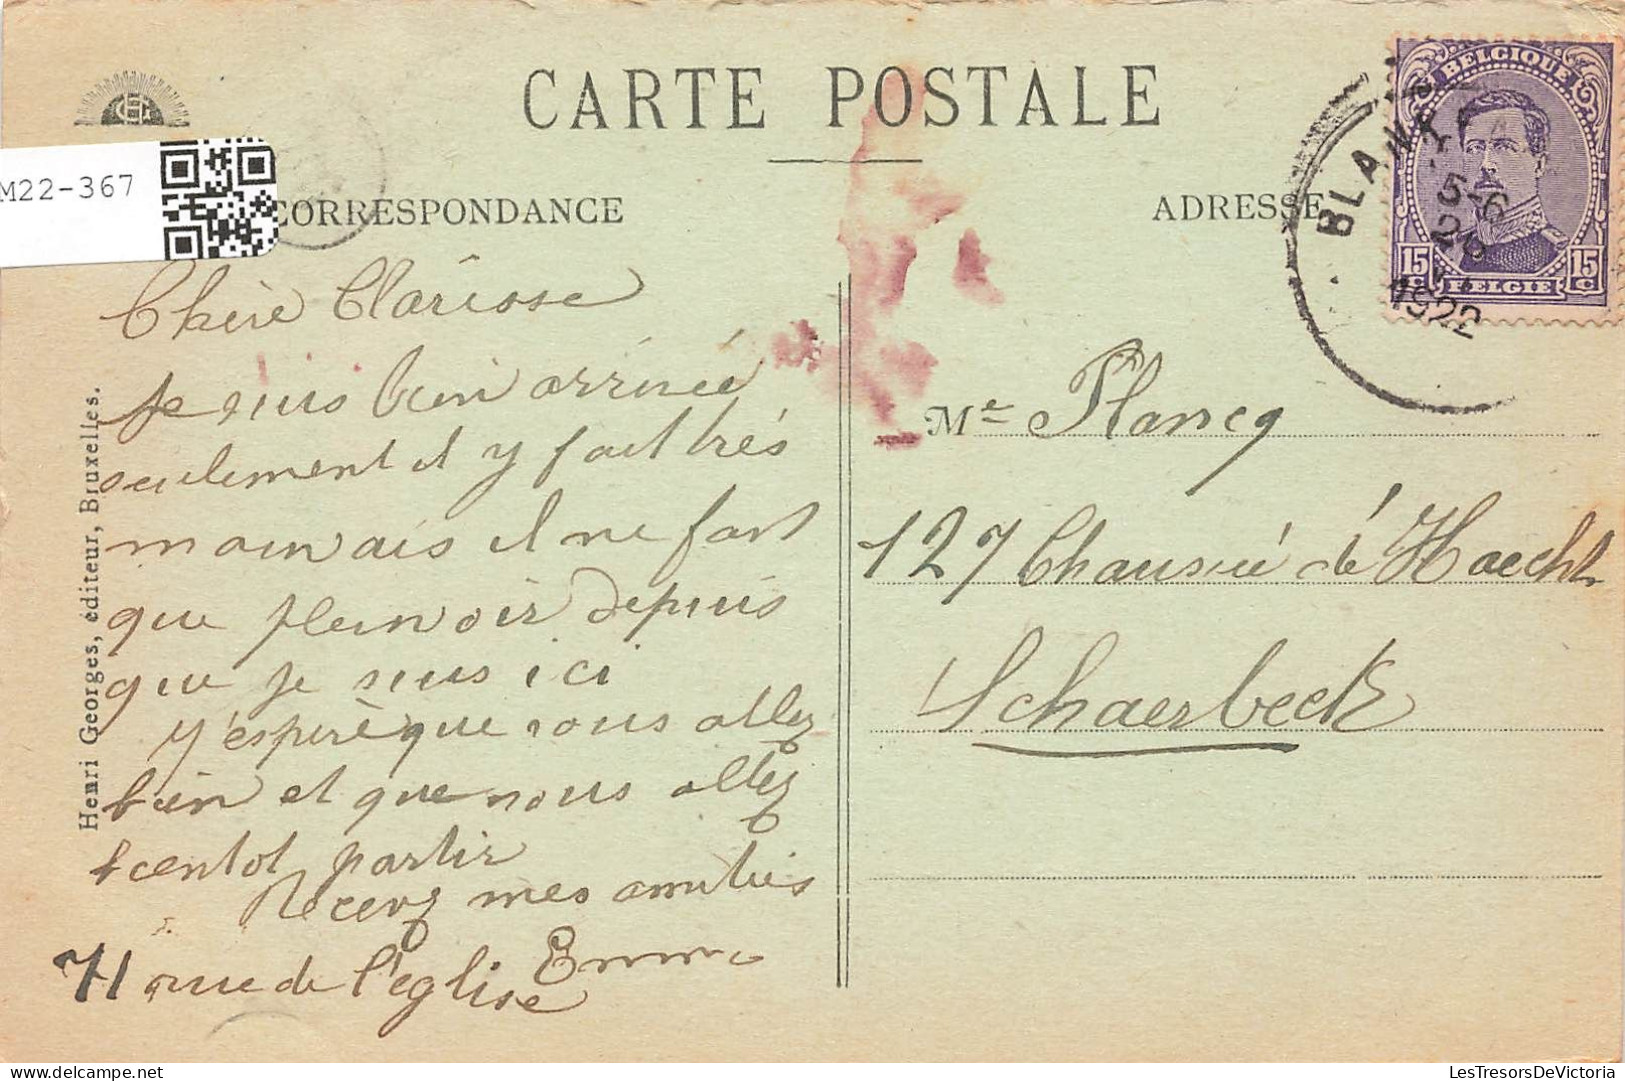 CARTE POSTALE
M22-367
CORRESPONDANCE
ADRESSE
BELGIQUE
15c
15c
BELGIE
BLANK
5-6
26
1922
Henri Georges, éditeur, Bruxelles.
Chère Clarisse
Je suis bien arrivée
seulement il y fait très
mauvais il ne fait
que pleuvoir depuis
que je suis ici
Y'espère que vous allez
bien et que vous allez
bientot partir
Recevez mes amitiés
Emma
71 rue de l'église
Me Plancq
127 Chaussée dé Haecht
Schaerbeck
LesTresorsDeVictoria